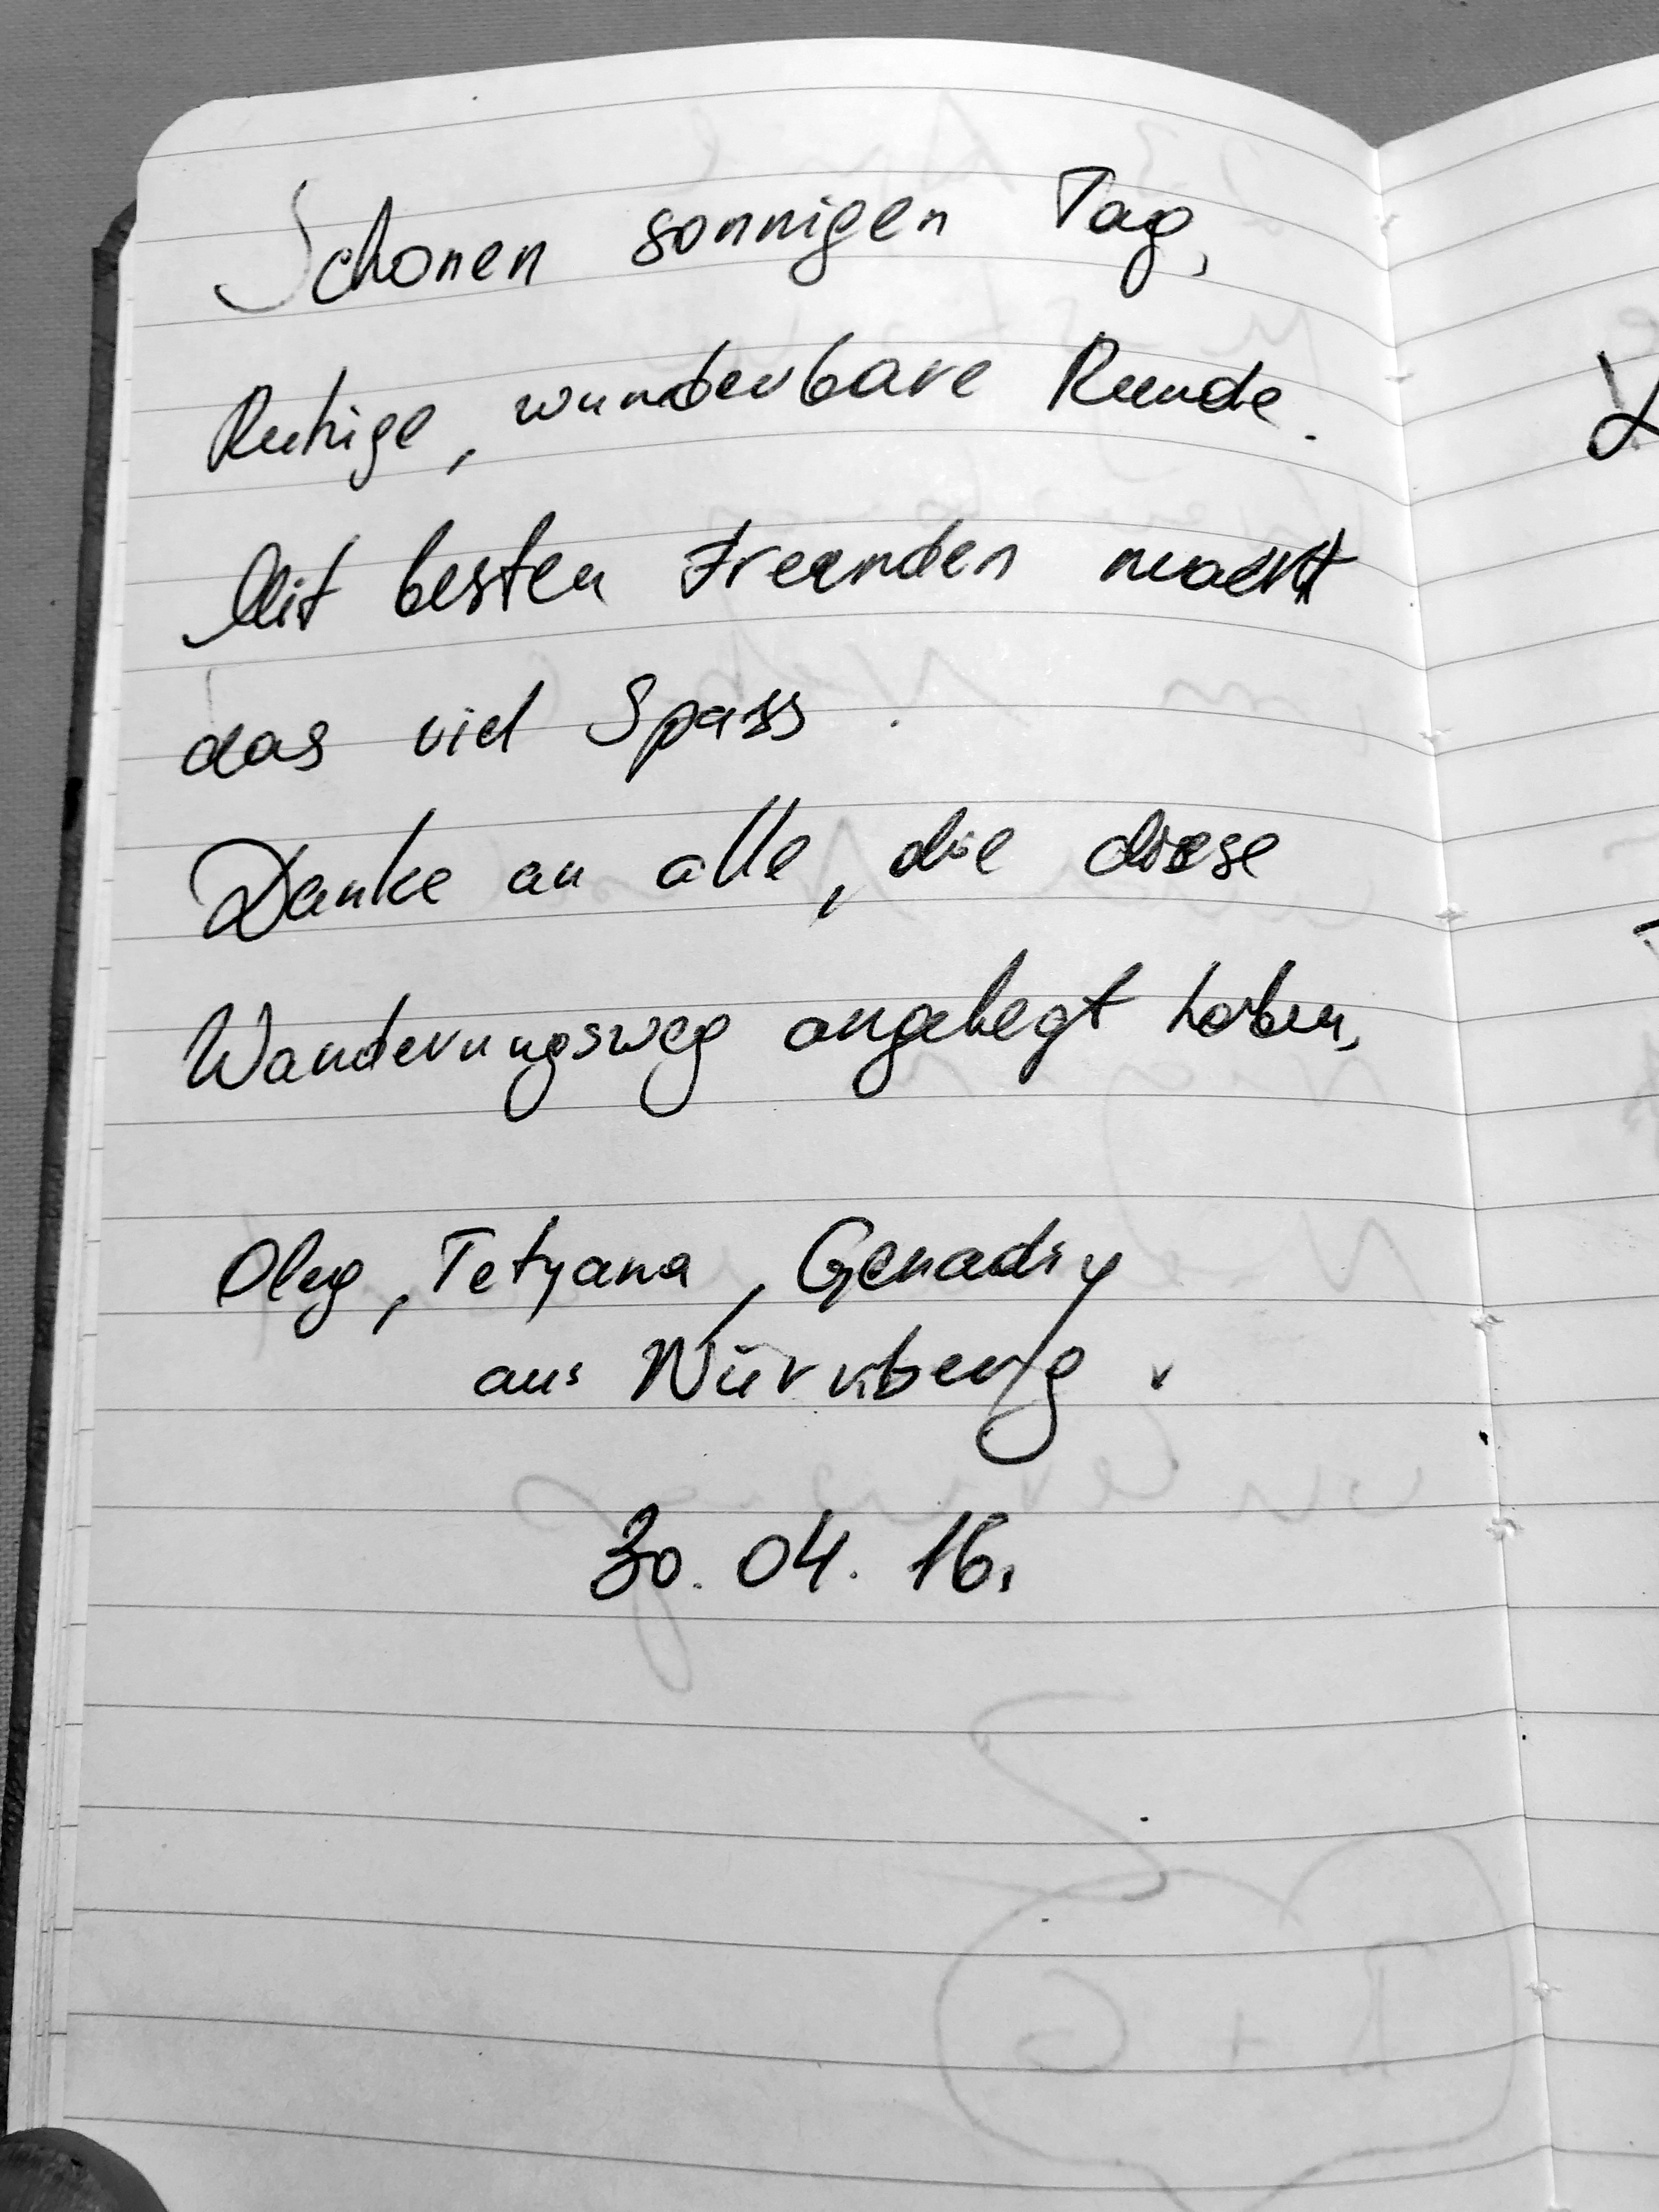 Schonen sonnigen Tag,
Ruhige, wunderbare Runde.
Mit besten Freunden macht
das viel Spass.
Danke an alle, die diese
Wanderungsweg angelegt haben.
Oleg, Tetyana, Genadiy
aus Nürnberg.
30.04.16.